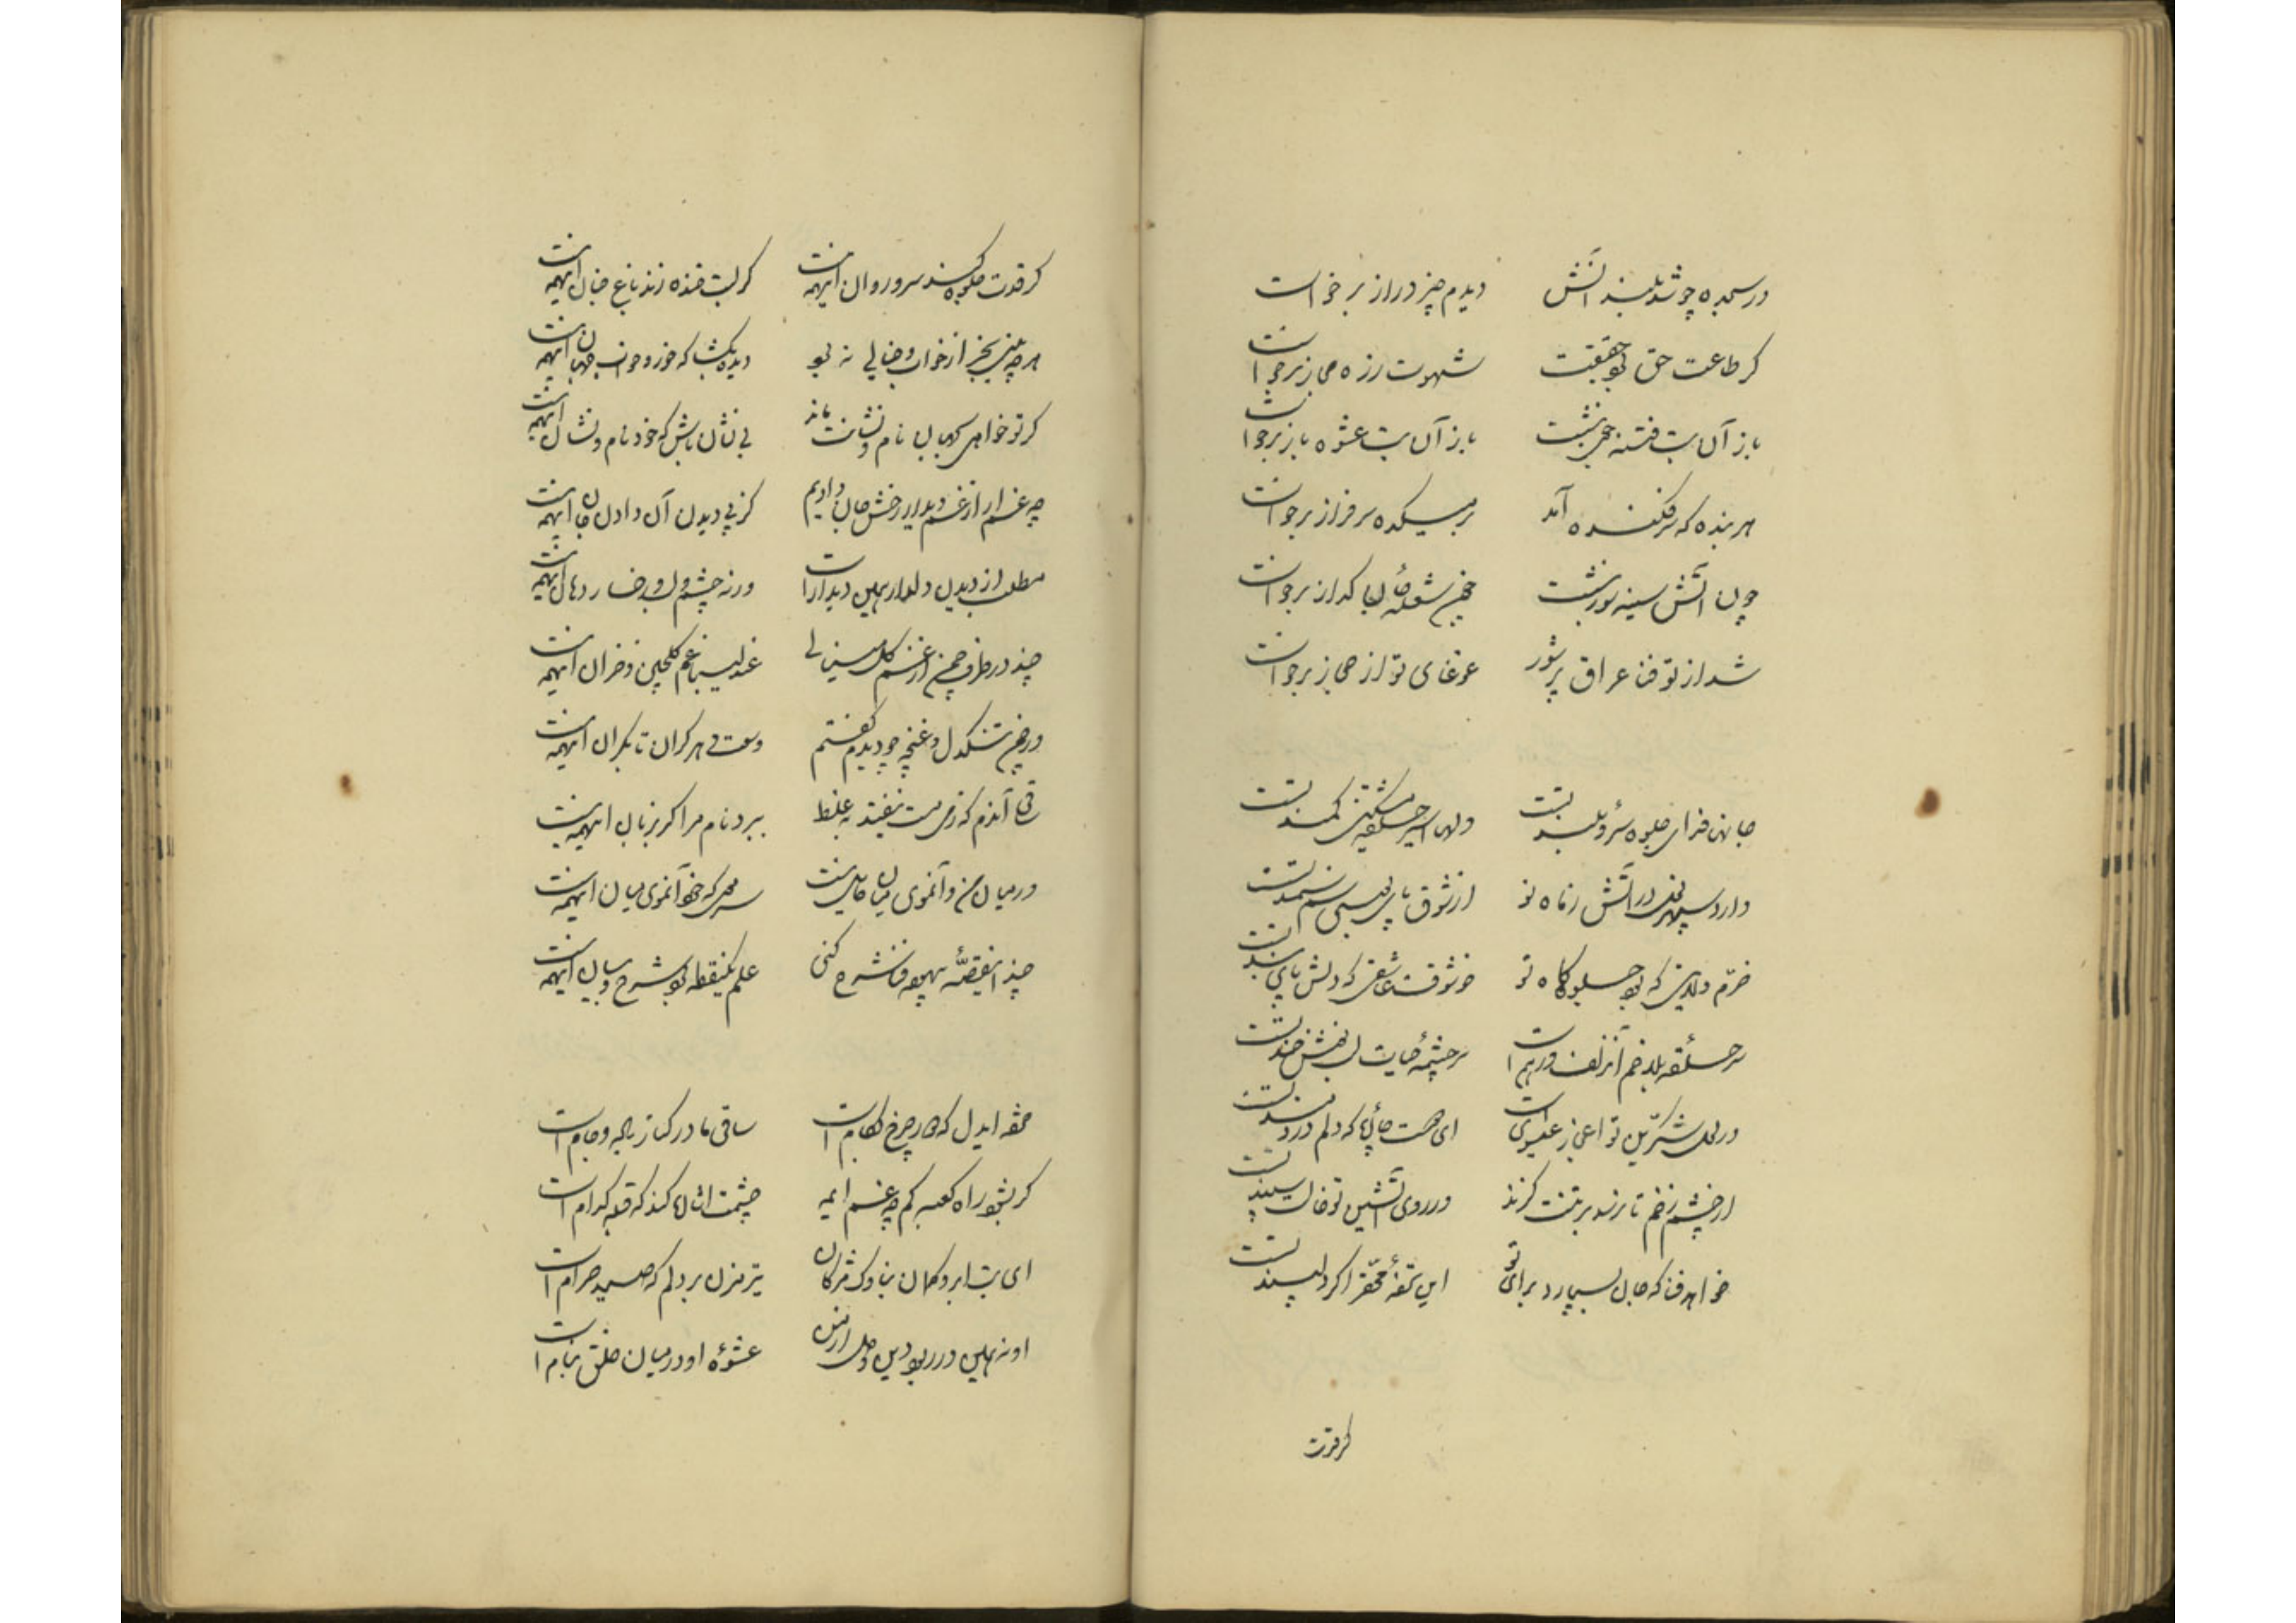 در سجده چو شد بلند آتش دیدم چیز دراز برخواست
کر طاعت حق بود حقیقت شهوت زره مجاز برخواست
باز آن بت فتنه جو نشست باز آن بت عشوه باز برخواست
هر بنده که سرفکنده آمد بر میکده سرفراز برخواست
چون آتش سینه سوز بنشست شعله جان کداز برخواست
شد از تو فنا عراق پر شور غوغای تو از حجاز برخواست
جانها فدای جلوه سرو بلند تست دلها اسیر حلقه مشکین کمند تست
دارد سپهر نعل در آتش ز ماه نو از شوق پای سم سمند تست
خرم دلی که بود جلوه کاه تو خوشوقت عاشقی که دلش پای بند تست
سر حلقه بلا خم آن زلف درهم است سرچشمه حیات لب نوشخند تست
در لعل شکرین تو اعجاز عیسوی است ای هست جانها که دلم دردمند تست
از چشم زخم تا نرسد بر تنت کزند در روی آتشین تو خال سپند تست
خواهد فنا که جان بسپارد برای تو این تحفه محقر اکر دلپسند تست
کر قدت
کر قدت جلوه کند سرو روان اینهمه نیست کر لبت خنده زند باغ جنان اینهمه نیست
هر چه بینی بجز از خواب و خیالی نبود دیده بکشا که خود و خواب جهان اینهمه نیست
کر تو خواهی که بجهان نام و نشانت ماند بی نشان باش که خود نام و نشان اینهمه نیست
چه غم ار از غم دیدار رخش جان دادیم کز پی دیدن آن دادن جان اینهمه نیست
مطلب از دیدن دلدار همین دیدار است ورنه چشم و لب و رخسار و دهان اینهمه نیست
چند در طرف چمن از غم کل مینالی عندلیبا غم کلچین و خزان اینهمه نیست
در چمن تنکدل و غنچه چو دیدم کفتم وسعت هر کران تا بکران اینهمه نیست
آندم که ز می مست نیفتد بغلط ببرد نام مرا کر بزبان اینهمه نیست
در میان من و آنموی میان حایل نیست که جز آنموی میان اینهمه نیست
چند اینقصه بیهوده فنا شرح کنی علم یکنقطه بود شرح و بیان اینهمه نیست
مژده ایدل که کار چرخ بکام است ساقی ما در کنار باده و جام است
کر نبود راه کعبه کم چه غم ایمه چشمت اشاره کند که قبله کدام است
ای بت ابرو کمان بناوک مژکان تیر مزن بر دلم که صید حرام است
او نه همین در ربود دین و دل از من عشوه او در میان خلق بنام است